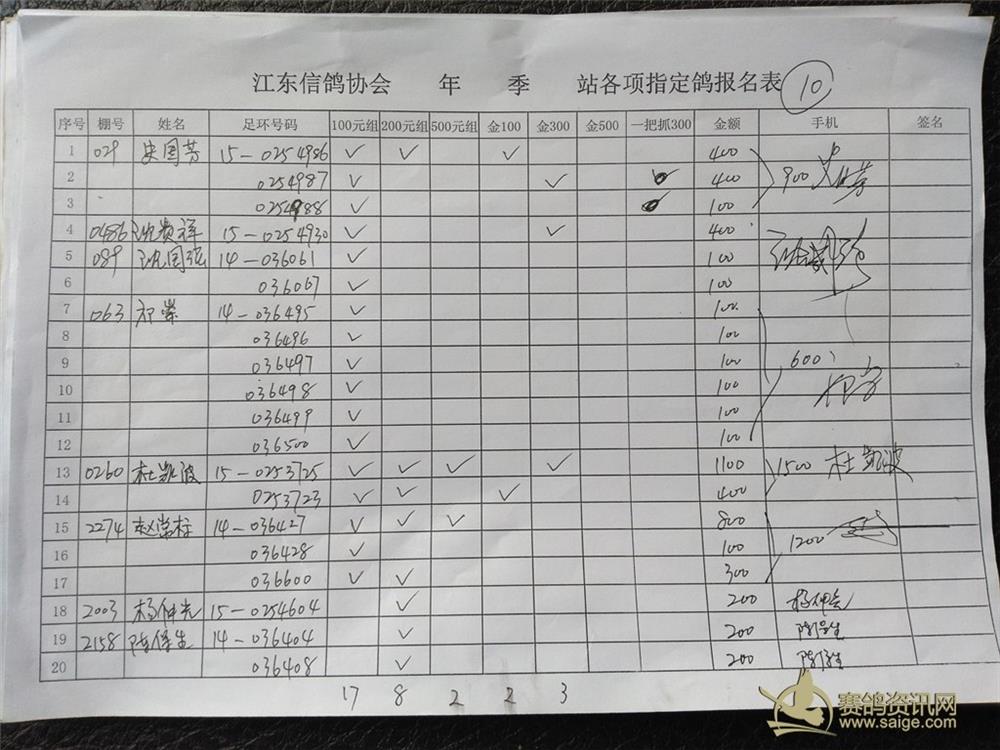 江东信鸽协会 年 季 站各项指定鸽报名表 10
序号 棚号 姓名 足环号码 100元组 200元组 500元组 金100 金300 金500 一把抓300 金额 手机 签名
1 029 史国芳 15-0254986 ✓ ✓ ✓ 400
2 0254987 ✓ ✓ 400 900
3 0254988 ✓ 100
4 0486 沈贵祥 15-0254930 ✓ ✓ 400
5 089 沈国强 14-036061 ✓ 100
6 036067 ✓ 100
7 063 14-036495 ✓ 100
8 036496 ✓ 100
9 036497 ✓ 100 600
10 036498 ✓ 100
11 036499 ✓ 100
12 036500 ✓ 100
13 0260 杜凯波 15-0253725 ✓ ✓ ✓ ✓ 1100 1500 杜凯波
14 0253723 ✓ ✓ ✓ 400
15 2274 赵常标 14-036427 ✓ ✓ ✓ 800
16 036428 ✓ 100 1200
17 036600 ✓ ✓ 300
18 2003 杨仲光 15-0254604 ✓ 200
19 2158 陈信生 14-036404 ✓ 200
20 036408 ✓ 200
17 8 2 2 3
赛鸽资讯网
www.saige.com